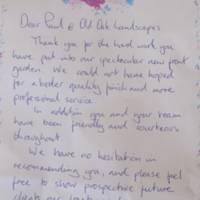 Dear Paul @ Old Oak Landscapes
Thank you for the hard work you
have put into our spectacular new front
garden. We could not have hoped
for a better quality finish and more
professional service.
In addition you and your team
have been friendly and courteous
throughout.
We have no hesitation in
recommending you, and please feel
free to show prospective future
clients our